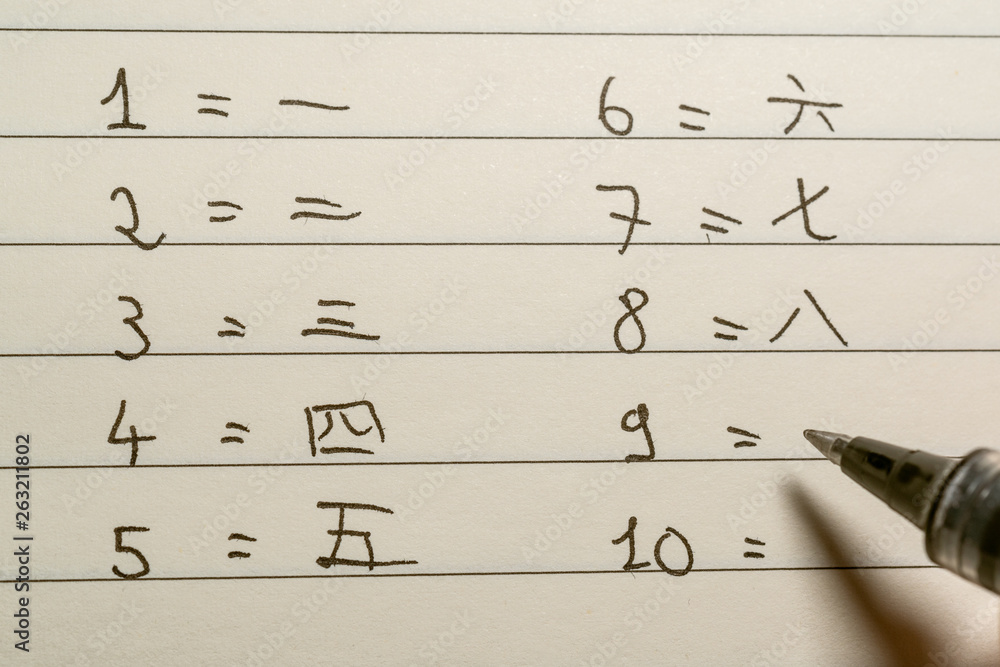 1 = 一
2 = 二
3 = 三
4 = 四
5 = 五
6 = 六
7 = 七
8 = 八
9 =
10 =
Adobe Stock | #263211802
Adobe Stock